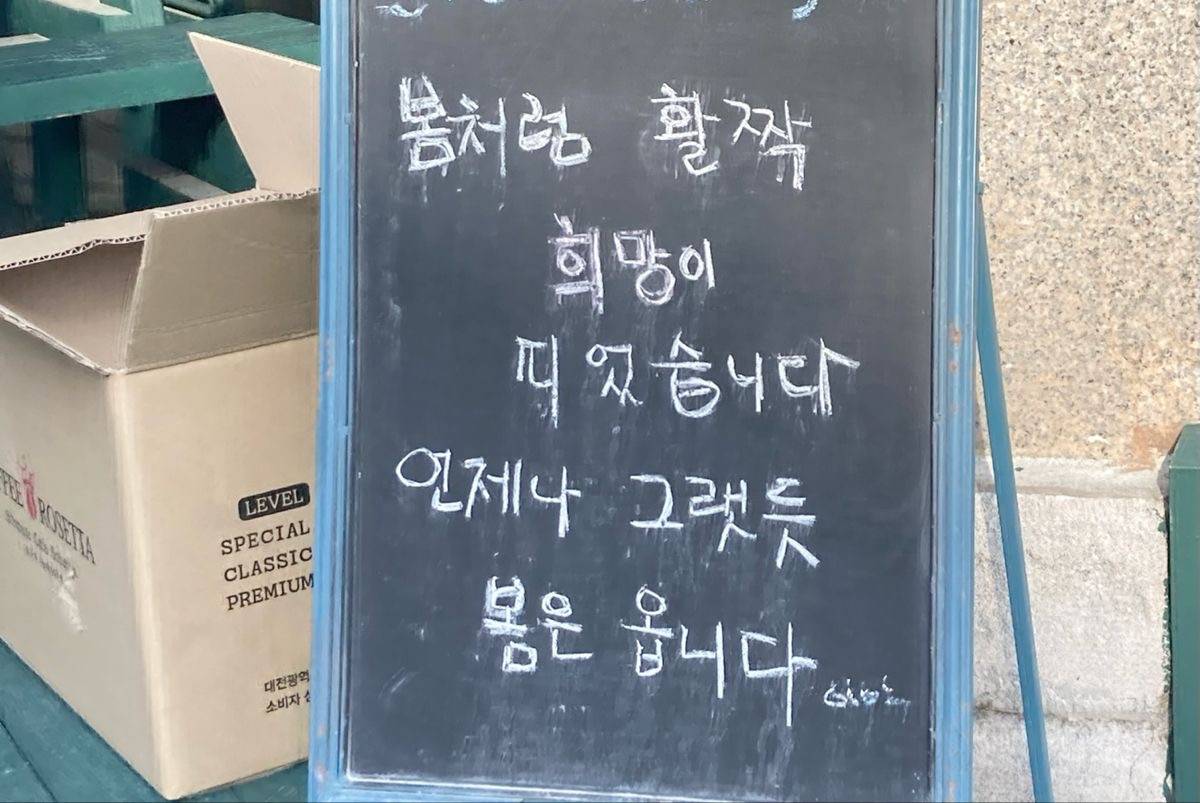 봄처럼 활짝
희망이
피었습니다
언제나 그랫듯
봄은 옵니다
ROSETTA
LEVEL
SPECIAL
CLASSIC
PREMIUM
대전광역
소비자